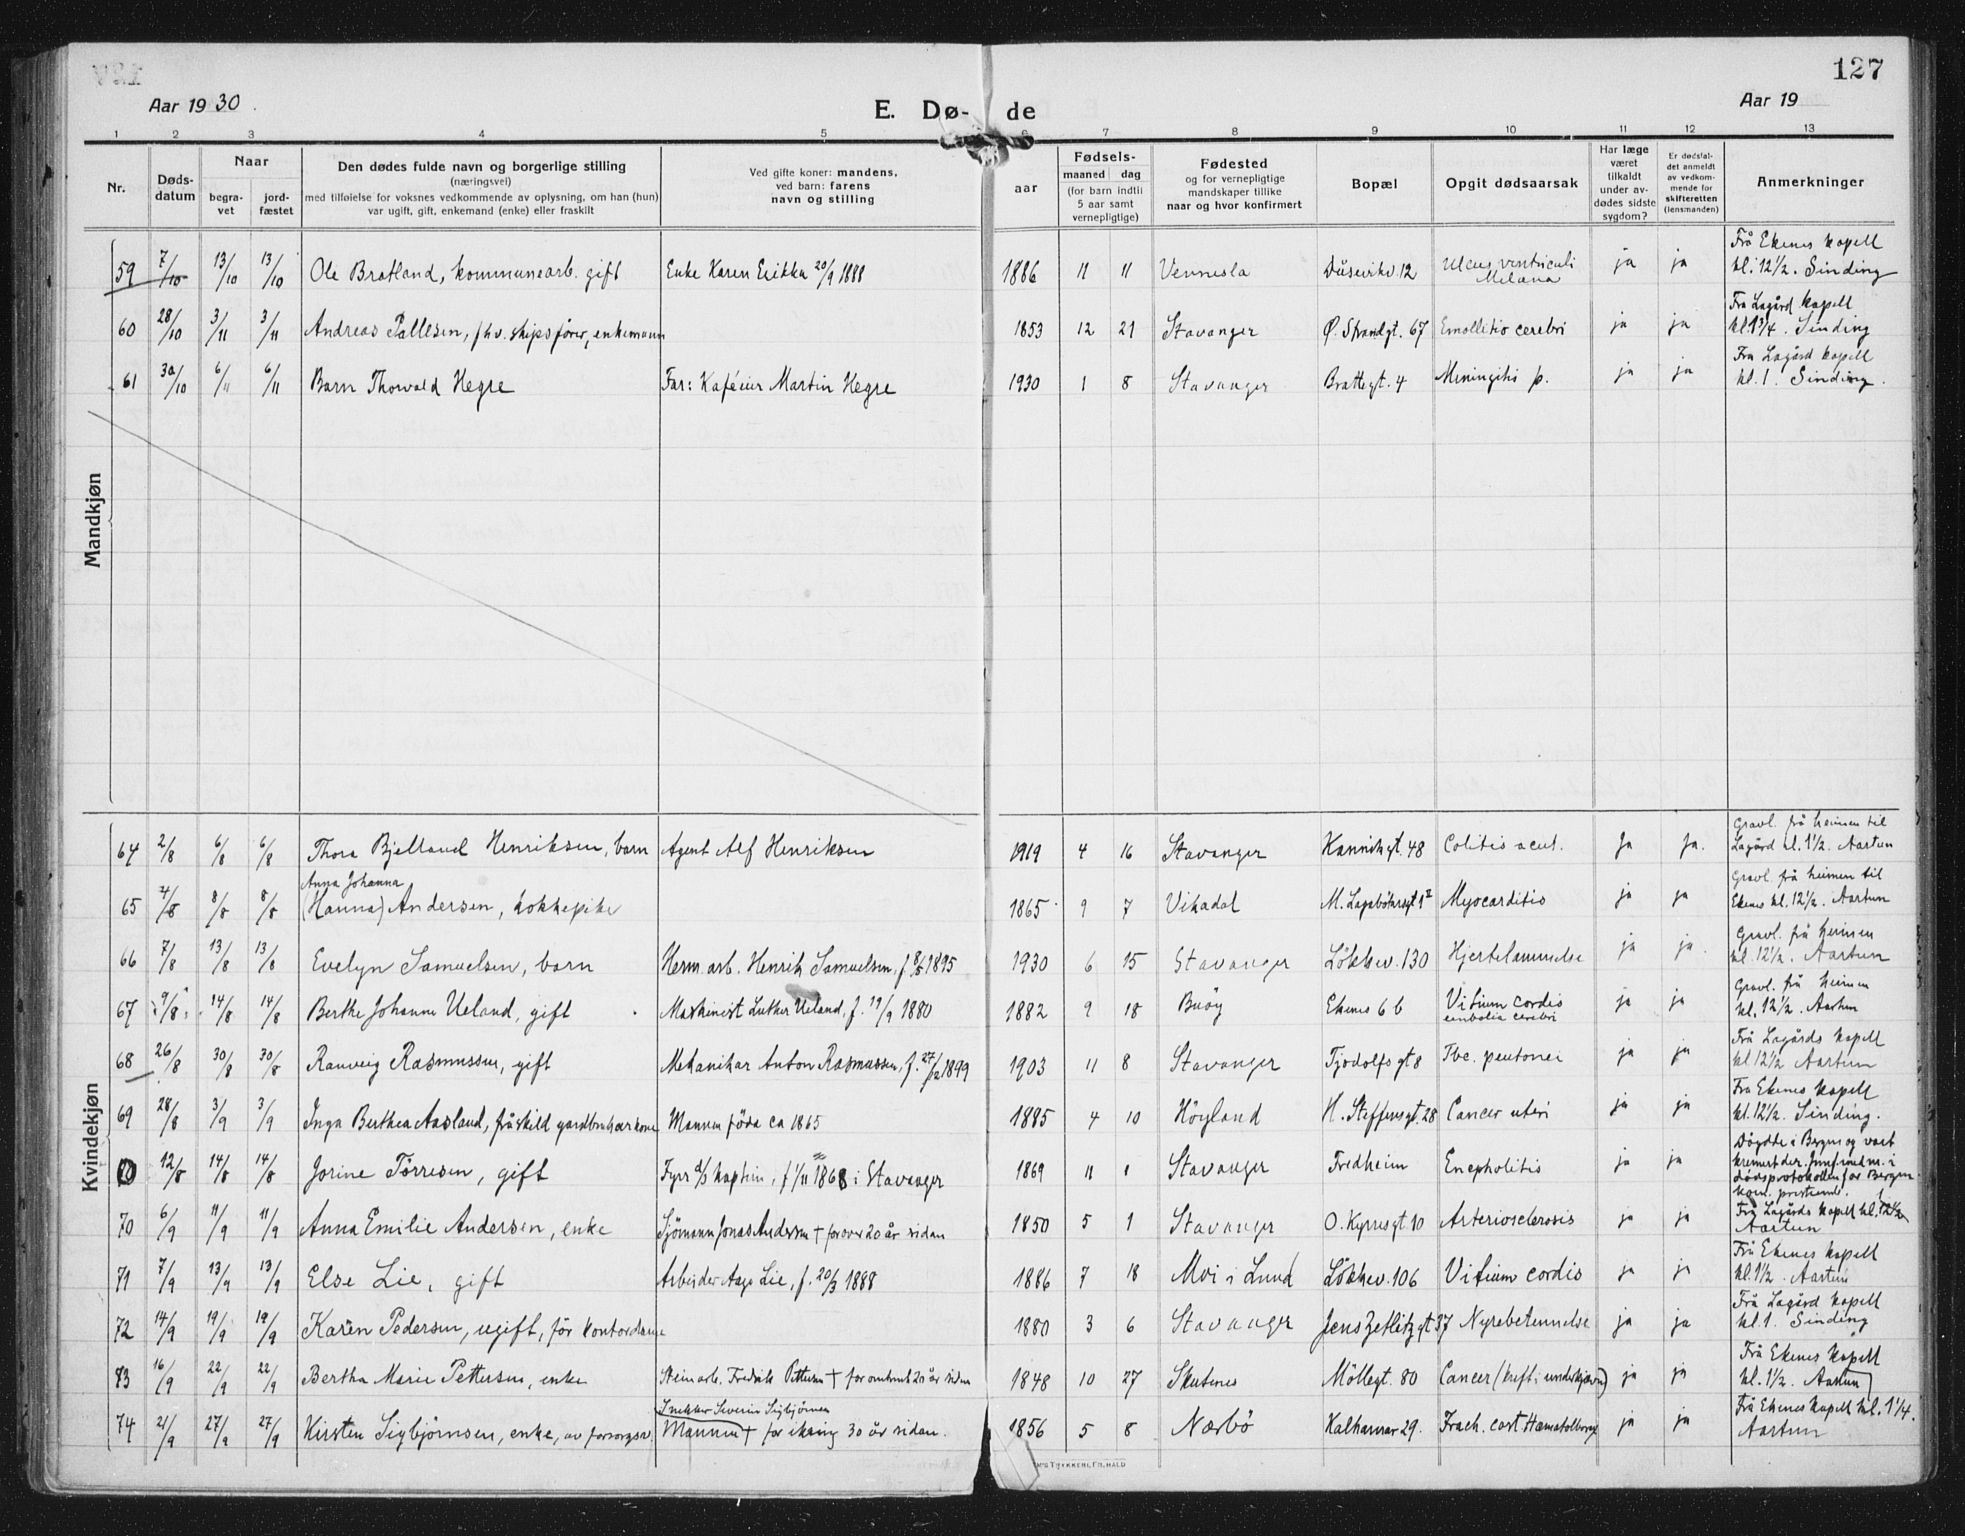 127
Aar 1930.
E. Dø- de
Aar 19
1 2 3 4 5 6 7 8 9 10 11 12 13
Nr.
Døds-
datum
Naar
begra-
vet
jord-
fæstet
Den dødes fulde navn og borgerlige stilling
(næringsvei)
med tilføielse for voksnes vedkommende av oplysning, om han (hun)
var ugift, gift, enkemand (enke) eller fraskilt
Ved gifte koner: mandens,
ved barn: farens
navn og stilling
aar
Fødsels-
maaned dag
(for barn indtil
5 aar samt
vernepligtige)
Fødested
og for vernepligtige
mandskaper tillike
naar og hvor konfirmert
Bopæl
Opgit dødsaarsak
Har læge
været
tilkaldt
under av-
dødes sidste
sygdom?
Er dødsfal-
det anmeldt
av vedkom-
mende for
skifteretten
(lensmanden)
Anmerkninger
Mandkjøn
59 7/10 13/10 13/10 Ole Bratland, kommunearb. gift Enke Karen Erikka 20/9 1888 1886 11 11 Vennesla Dusevikv. 12 Ulcus ventriculi Melæna ja ja Frå Ekenes kapell kl. 12 1/2. Sinding
60 28/10 3/11 3/11 Andreas Pallesen, fhv. skipsfører, enkemann 1853 12 21 Stavanger Ø. Strandgt. 67 Emollitio cerebri ja ja Fra Lagård kapell kl. 1 3/4. Sinding
61 30/10 6/11 6/11 Barn Thorvald Hegre Far: Kaféeier Martin Hegre 1930 1 8 Stavanger Brattegt. 4 Meningitis p. ja ja Fra Lagård kapell kl. 1. Sinding.
Kvindekjøn
64 2/8 6/8 6/8 Thora Bjelland Henriksen, barn Agent Alf Henriksen 1919 4 16 Stavanger Kannikgt. 48 Colitis acut. Ja Ja. Gravl. frå heimen til Lagård kl. 1 1/2. Aartun
65 4/8 8/8 8/8 Anna Johanna (Hanna) Andersen, kokkepike 1865 9 7 Vikadal M. Lagabøtersgt 1 II Myocarditis ja ja Gravl. frå heimen til Ekenes kl. 12 1/2. Aartun
66 7/8 13/8 13/8 Evelyn Samuelsen, barn Herm. arb. Henrik Samuelsen, f. 8/5 1895 1930 6 15 Stavanger Løkkev. 130 Hjertelammelse ja ja Gravl. frå heimen kl. 12 1/2. Aartun
67 9/8 14/8 14/8 Berthe Johanne Ueland, gift Maskinist Luther Ueland, f. 19/9 1880 1882 9 18 Buøy Ekenes 6 b Vitium cordis embolia cerebri ja ja Gravl. frå heimen kl. 12 1/2. Aartun
68 26/8 30/8 30/8 Ranveig Rasmussen, gift Mekanikar Anton Rasmussen, f. 27/12 1899 1903 11 8 Stavanger Tjodolfsgt 8 Tbc. peritonei ja ja Frå Lagårds kapell kl 12 1/2 Aartun
69 28/8 3/9 3/9 Inga Berthea Aasland, fråskild gardbrukarkone Mannen fødd ca 1865 1885 4 10 Høyland H. Steffensgt. 28 Cancer uteri ja ja Fra Ekenes kapell kl. 12 1/2. Sinding.
12/8 14/8 14/8 Jorine Tørresen, gift Fyrr a/s kaptein, f 1/11 1868 i Stavanger 1869 11 1 Stavanger Fredheim Encepholitis ja ja Døydde i Bergen og vart kremert der. Innf. med nr. i dødsprotokollen for Bergen
70 6/9 11/9 11/9 Anna Emilie Andersen, enke Sjømann Jonas Andersen † for over 20 år sidan 1850 5 1 Stavanger O. Kyrresgt 10 Arteriosclerosis ja ja Frå Lagårds kapell kl. 12 1/2 Aartun
71 7/9 13/9 13/9 Else Lie, gift Arbeider Aage Lie, f. 20/3 1888 1886 7 18 Moi i Lund Løkkev. 106 Vitium cordis ja ja Frå Ekenes kapell kl. 1 1/2. Aartun
72 14/9 19/9 19/9 Karen Pedersen, ugift, før kontordame 1880 3 6 Stavanger Jens Zetlitzgt 37 Nyrebetennelse ja ja Frå Lagård kapell kl. 1. Sinding
83 16/9 22/9 22/9 Bertha Marie Pettersen, enke Steinarb. Fredrik Pettersen † for omtrent 20 år sidan 1848 10 27 Skutenes Møllegt. 80 Cancer (kreft i underkjæven) ja ja Frå Ekenes kapell kl. 1 1/2. Aartun
74 21/9 27/9 27/9 Kirsten Sigbjørnsen, enke, av forsorgsv. Snekker Severin Sigbjørnsen Mannen † for ikring 30 år sidan. 1856 5 8 Nærbø Kalhammar 29. Frach. cost ja ja Frå Ekenes kapell kl. 1 1/4. Aartun